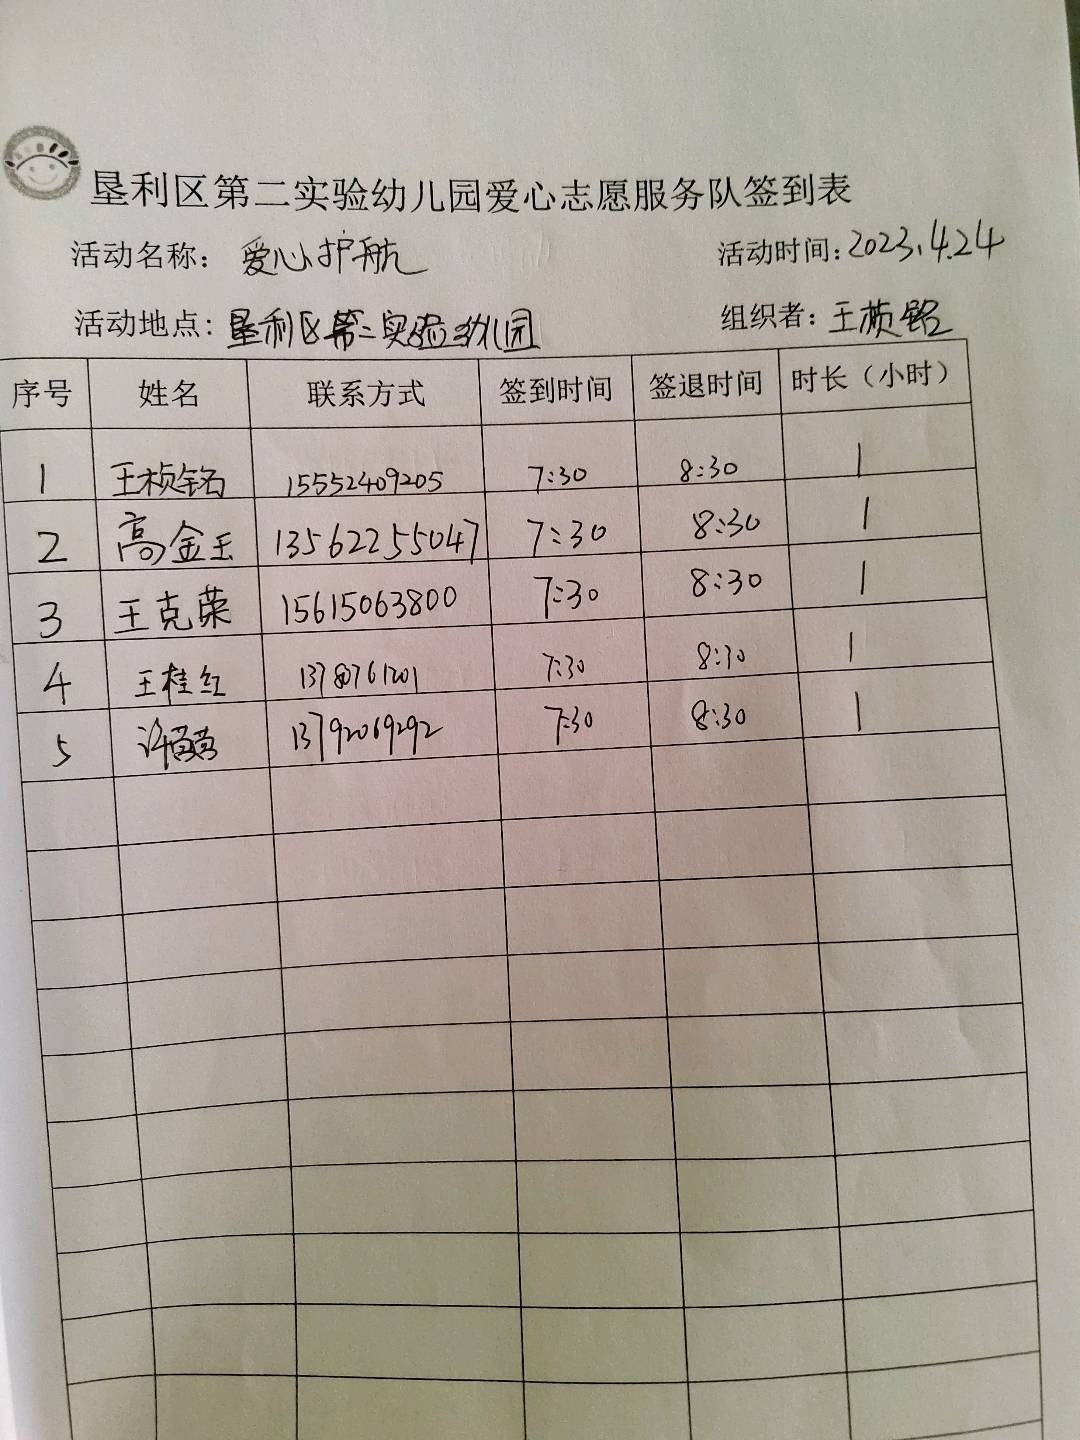 垦利区第二实验幼儿园爱心志愿服务队签到表
活动名称：爱心护航 活动时间：2023.4.24
活动地点：垦利区第二实验幼儿园 组织者：王桢铭
序号 姓名 联系方式 签到时间 签退时间 时长（小时）
1 王桢铭 15552409205 7:30 8:30 1
2 高金玉 13562255047 7:30 8:30 1
3 王克荣 15615063800 7:30 8:30 1
4 王桂红 7:30 8:30 1
5 13792069292 7:30 8:30 1